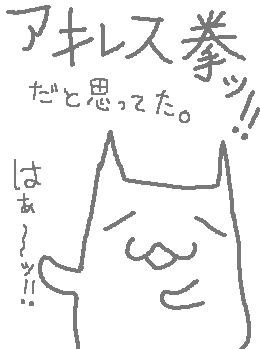 アキレス拳ッ!!
だと思ってた。
はぁ〜ッ!!